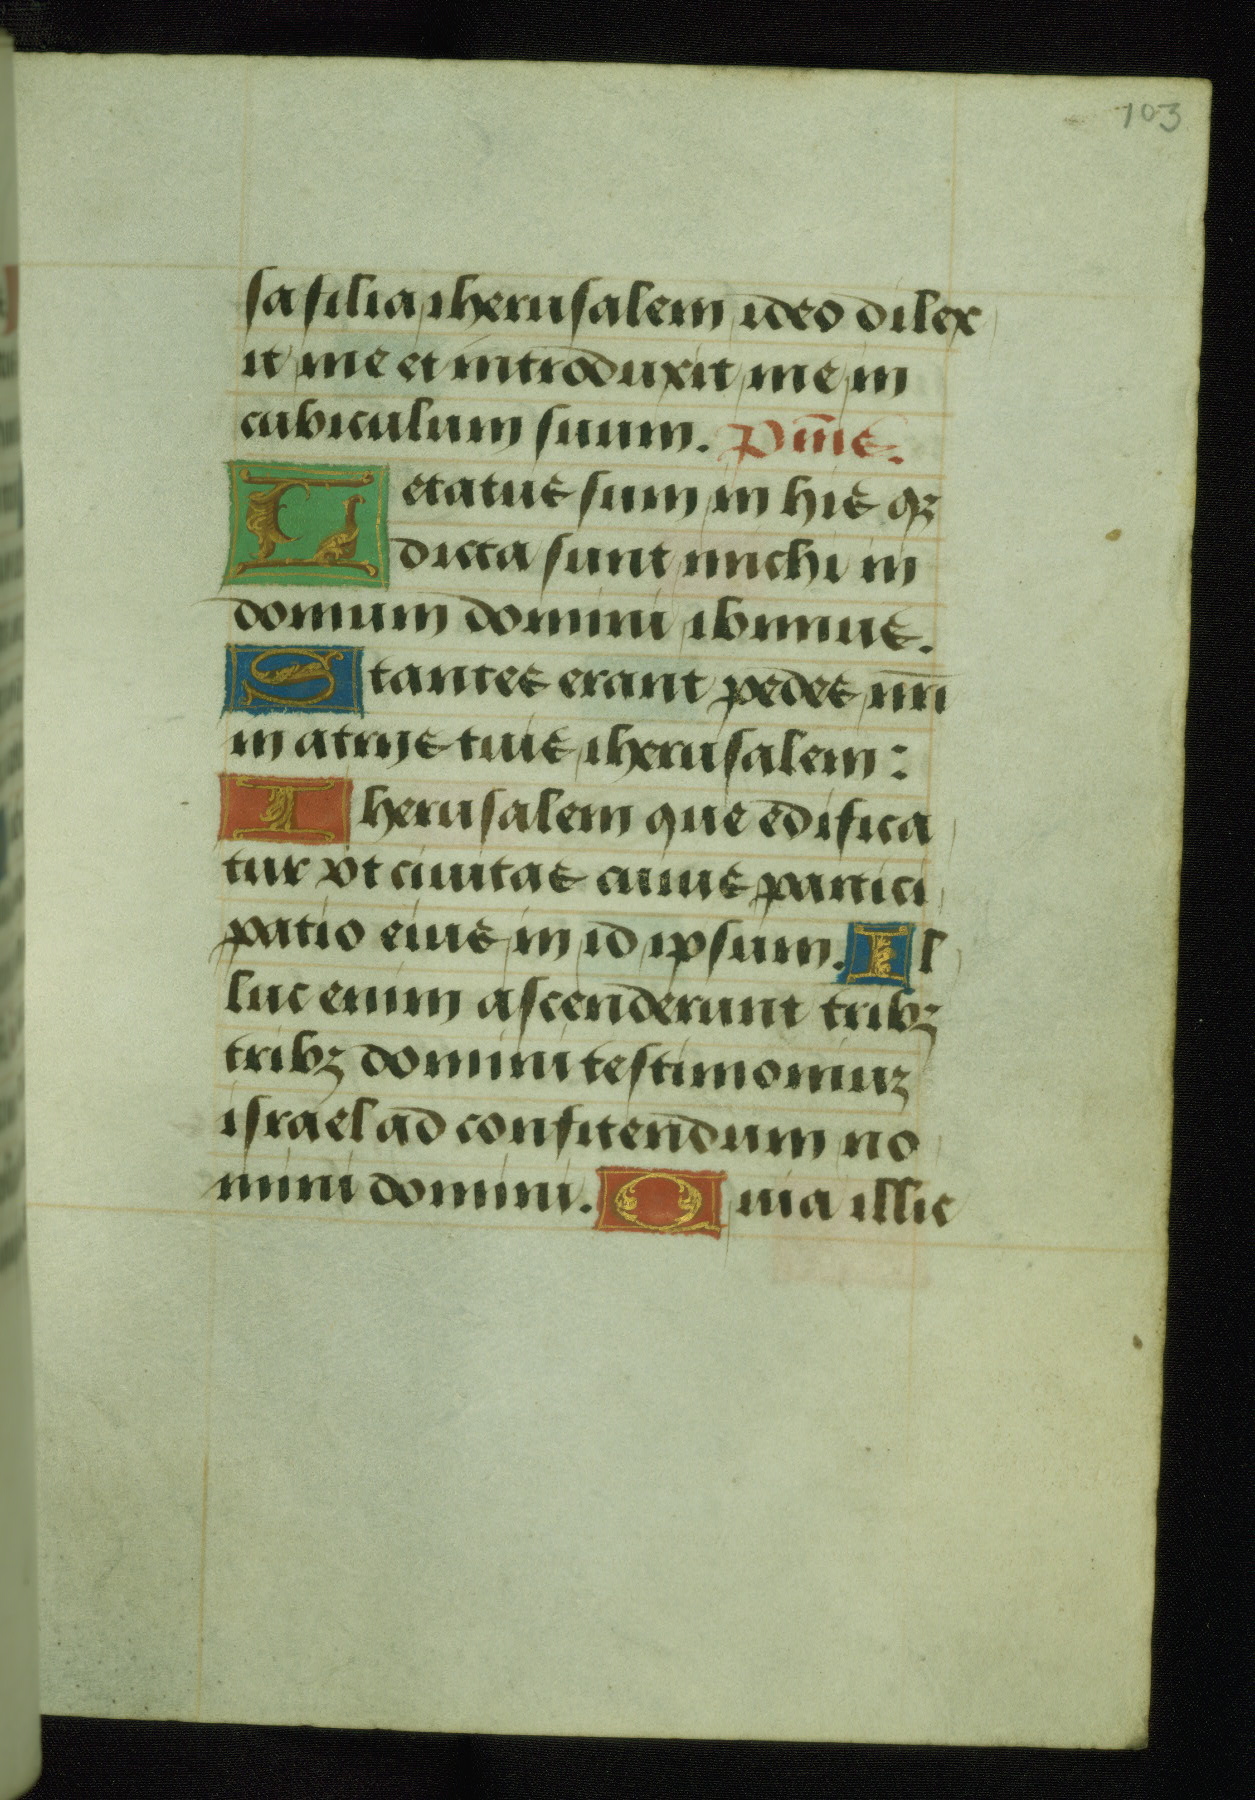 103
sa filia iherusalem ideo dilex
it me et introduxit me in
cubiculum suum. Psm̄s.
Letatus sum in his q̄ʒ
dicta sunt michi in
domum domini ibimus.
Stantes erant pedes nr̄i
in atrijs tuis iherusalem:
Iherusalem que edifica
tur vt ciuitas cuius partici
patio eius in id ipsum. Il
luc enim ascenderunt tribꝫ
tribꝫ domini testimoniuꝫ
israel ad confitendum no
mini domini. Quia illic